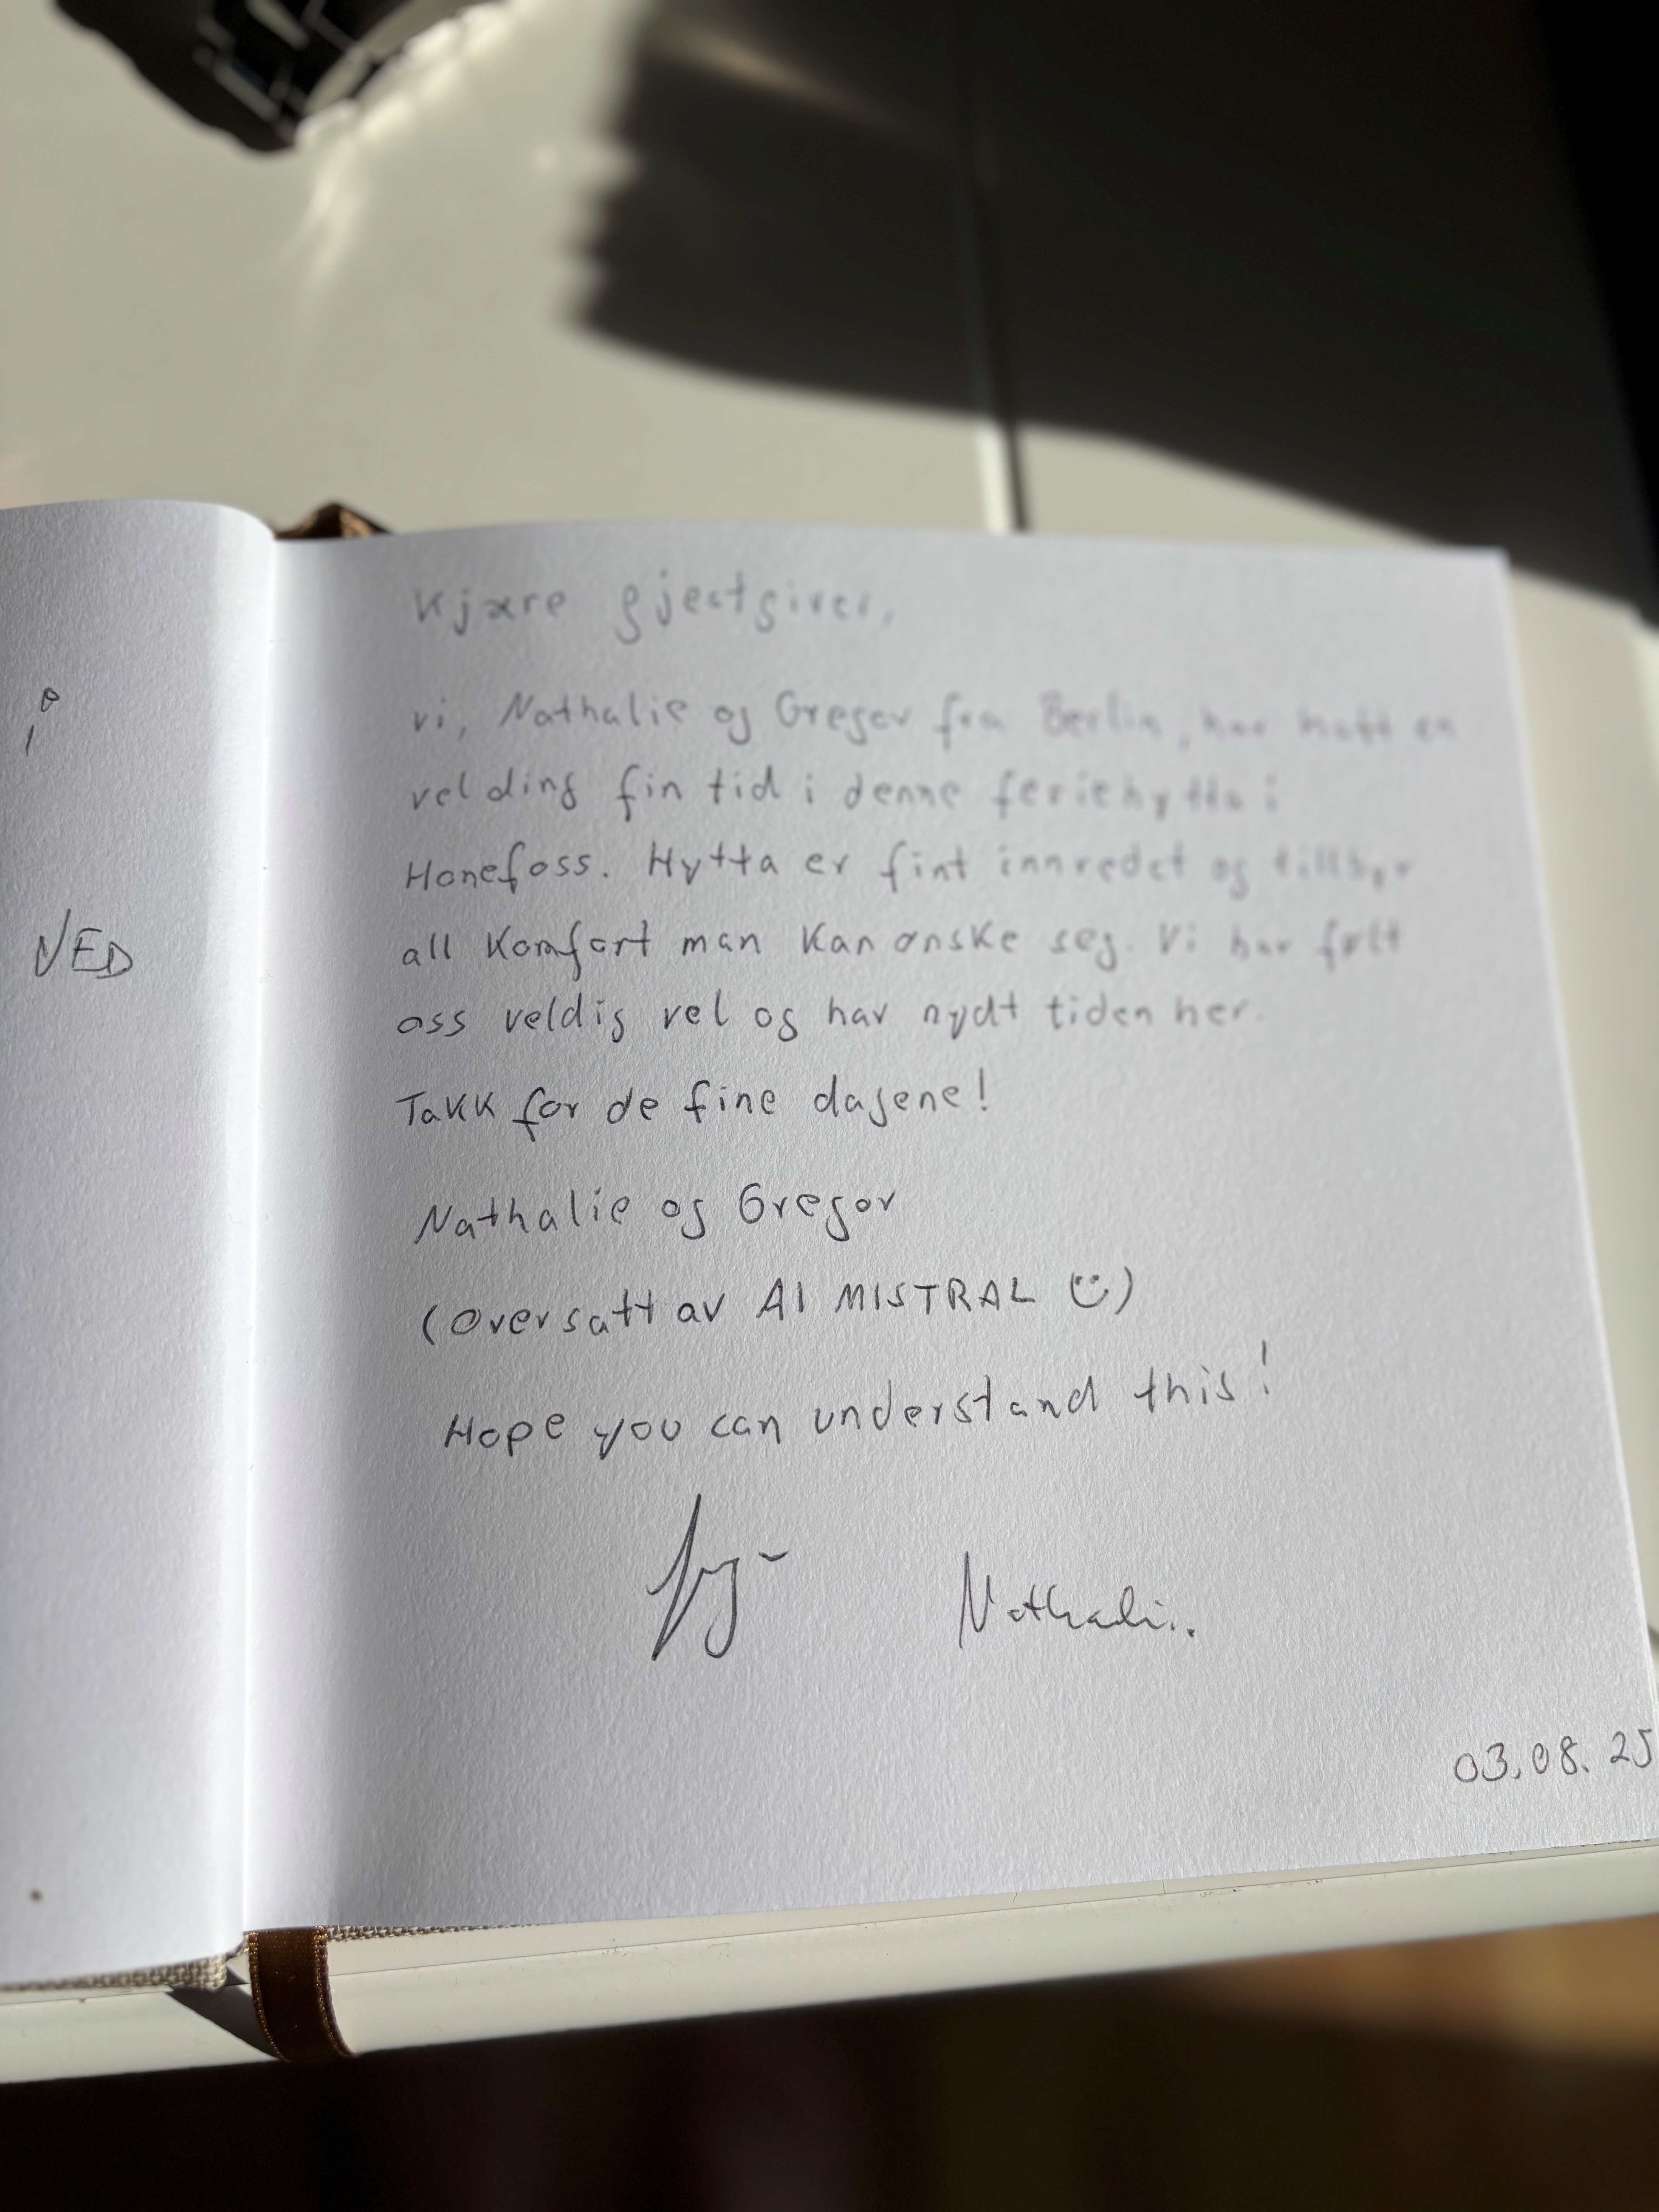 NED
Kjære gjestgiver,
vi, Nathalie og Gregor fra Berlin, har hatt en
velding fin tid i denne feriehytta i
Honefoss. Hytta er fint innredet og tillbyr
all Komfort man Kan ønske seg. Vi har følt
oss veldig vel og har nydt tiden her.
Takk for de fine dagene!
Nathalie og Gregor
(Oversatt av AI MISTRAL ☺)
Hope you can understand this!
Nathalie
03.08.25